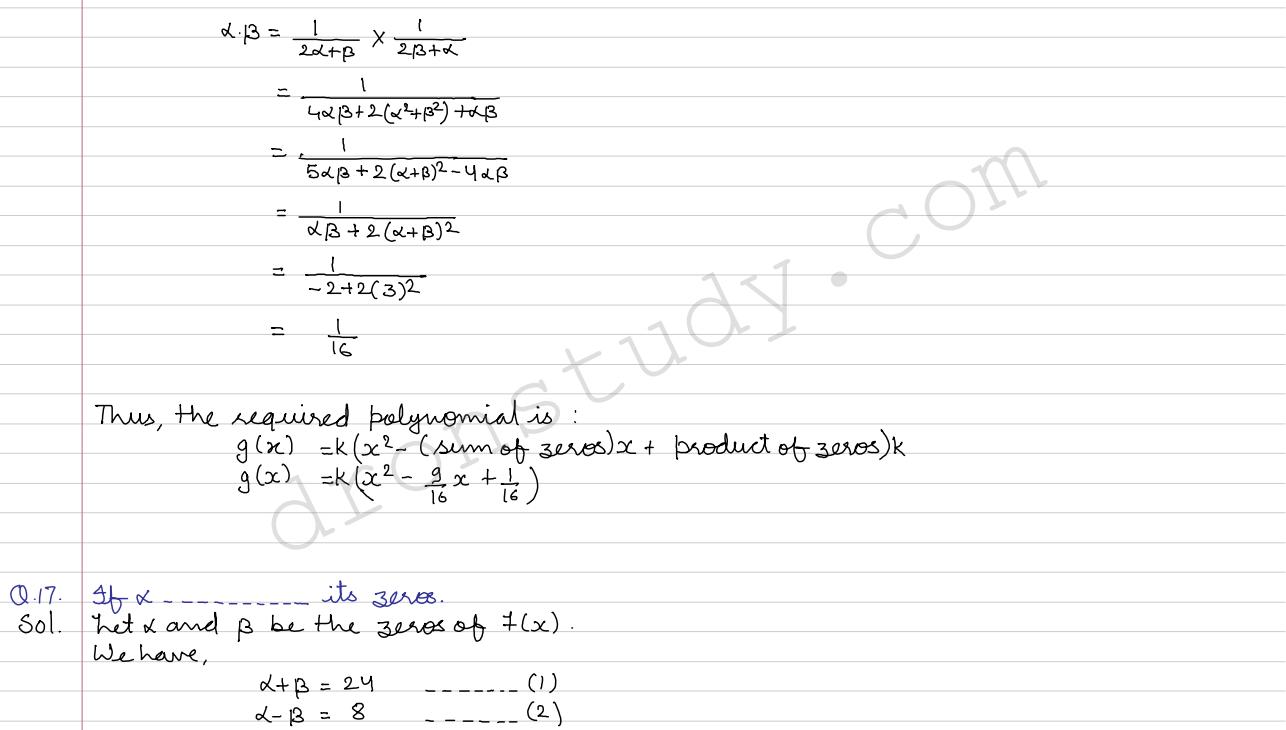 α.β = 1/(2α+β) × 1/(2β+α)
= 1/(4αβ+2(α²+β²)+αβ)
= 1/(5αβ+2(α+β)²-4αβ)
= 1/(αβ+2(α+β)²)
= 1/(-2+2(3)²)
= 1/16
Thus, the required polynomial is :
g(x) =k(x²-(sum of zeros)x + product of zeros)k
g(x) =k(x² - 9/16 x + 1/16)
Q.17. If α ----------- its zeros.
Sol. Let α and β be the zeros of f(x).
We have,
α+β = 24 ------- (1)
α-β = 8 ------ (2)
dronstudy.com